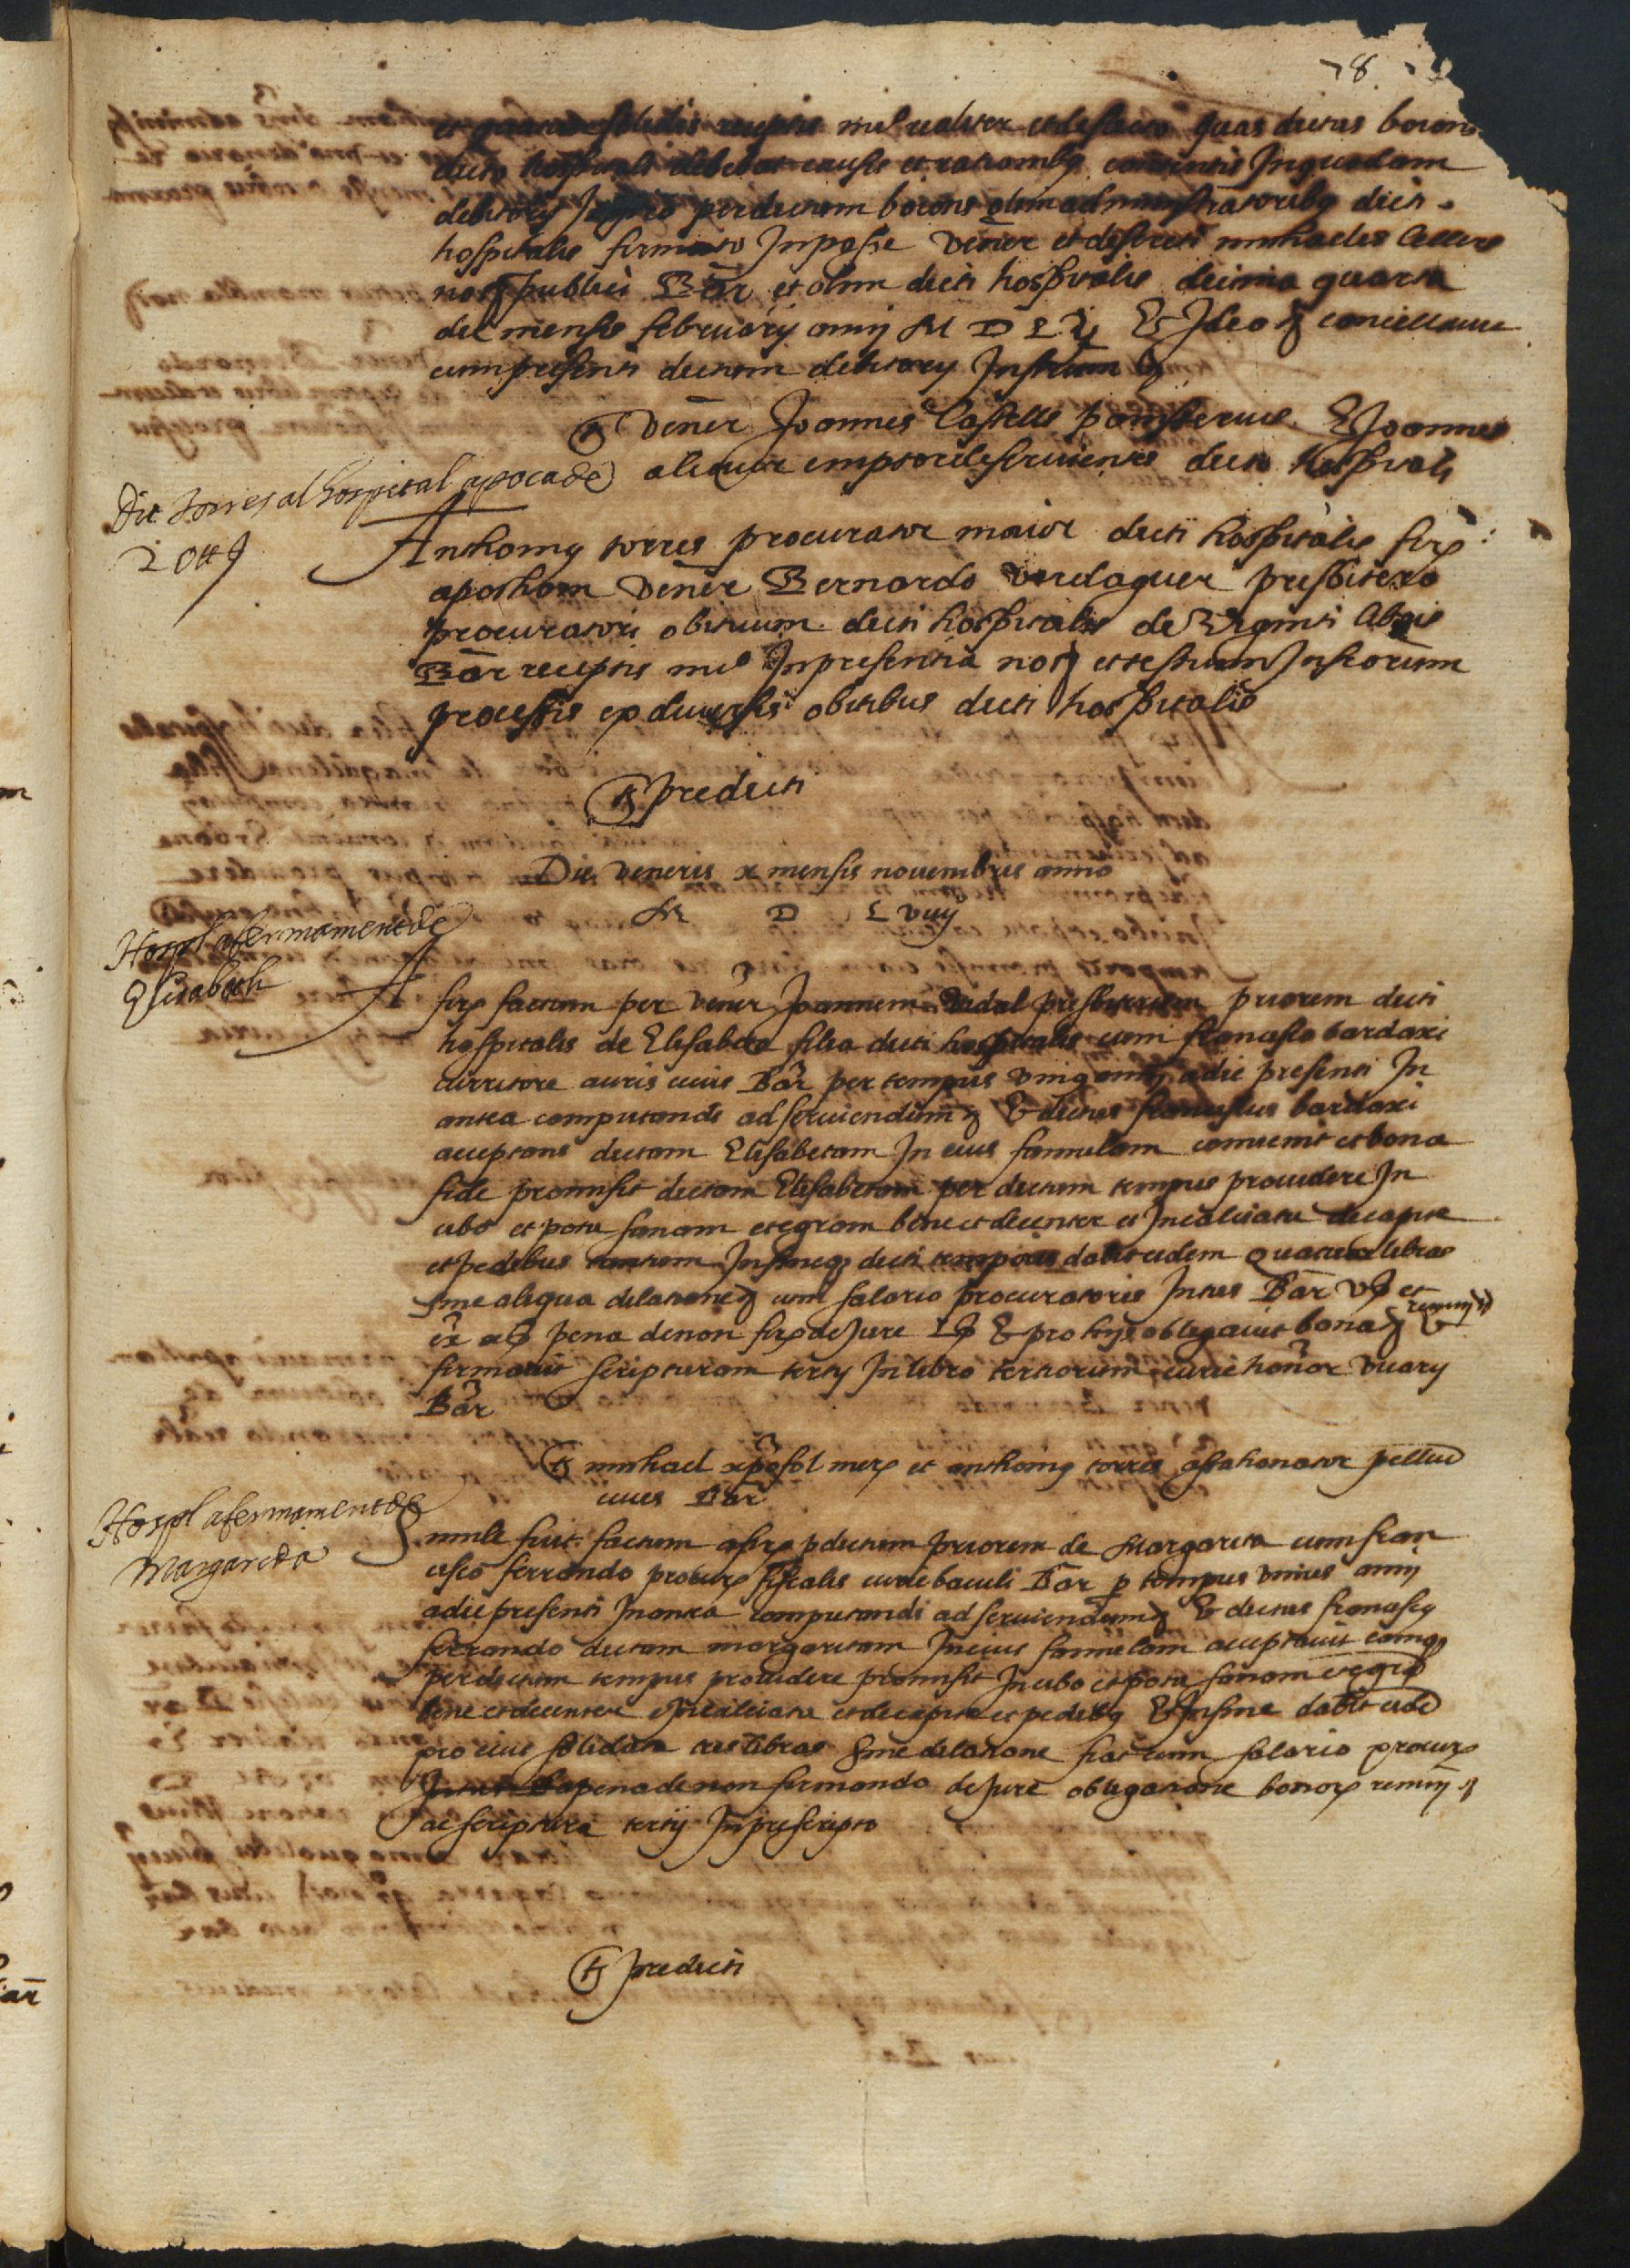 78
et quatuor solidis receptis mihi realiter et de facto quas dictus borons
dicto hospitali debebat causis et rationibus contentis In quodam
debitorij per dictum borons olim administratoribus dicti
hospitalis firmato In posse vener et discreti michaelis Cellers
not publici Bar et olim dicti hospitalis decima quarta
die mensis februarij anni M D L Et Ideo cancellavi
cum presenti dictum debitorij Instrum
ts vener Joannes Castells presbiterus Et Joannes
emptor deserviens dicto hospitali
Die Torres al hospital apoca de
20 ll
Anthonius torres procurator maior dicti hospitalis firmo
apocham vener Bernardo verdaguer presbitero
procuratori obituum dicti hospitalis de viginti libris
Bar receptis mihi In presentia not et testium Infrorum
processis ex diversis obitibus dicti hospitalis
ts predicti
Die veneris x mensis novembris anno
M D L viiij
Hospl afermament de
Elisabeth
A firm factum per vener Joannem Vidal presbiterum priorem dicti
hospitalis de Elisabeta filia dicti hospitalis cum francisco bardaxi
curritore auris cive Bar per tempus adie presenti In
antea computandi ad serviendum Et dictus franciscus bardaxi
acceptans dictam Elisabetam In eius famulam convenit et bona
fide promisit dictam Elisabetam per dictum tempus providere In
cibo et potu sanam et egram bene et decenter et In calciatu de capite
et pedibus tantum In fineque dicti temporis dabit eidem quatuor libras
sine aliqua dilatione cum salario procuratoris Intus Bar v s et
ex x s pena de non firm de Jure L s Et pro hijs obligavit bona renunt
firmavit scripturam tertij In libro tertiorum curie honor vicarij
Bar
ts michael mer et anthonius torres pellium
cives Bar
Hospl afermament de
Margarida
Simile fuit factum afirm p dictum priorem de Margarita cum fran
cisco ferrando procur fiscalis curie baiuli Bar p tempus unius anni
adie presenti In antea computandi ad serviendum Et dictus franciscus
ferrando dictam margaritam In eius famulam acceptavit eamque
per dictum tempus providere promisit In cibo et potu sanam et egram
bene et decenter et In calciatu et de capite et pedibus Et In fine dabit eidem
pro eius solidata tres libras sine dilatione fiat cum salario procur
pena de non firmando de Jure obligatione bonor renunt
ac scriptura tertij In prescripto
ts predicti